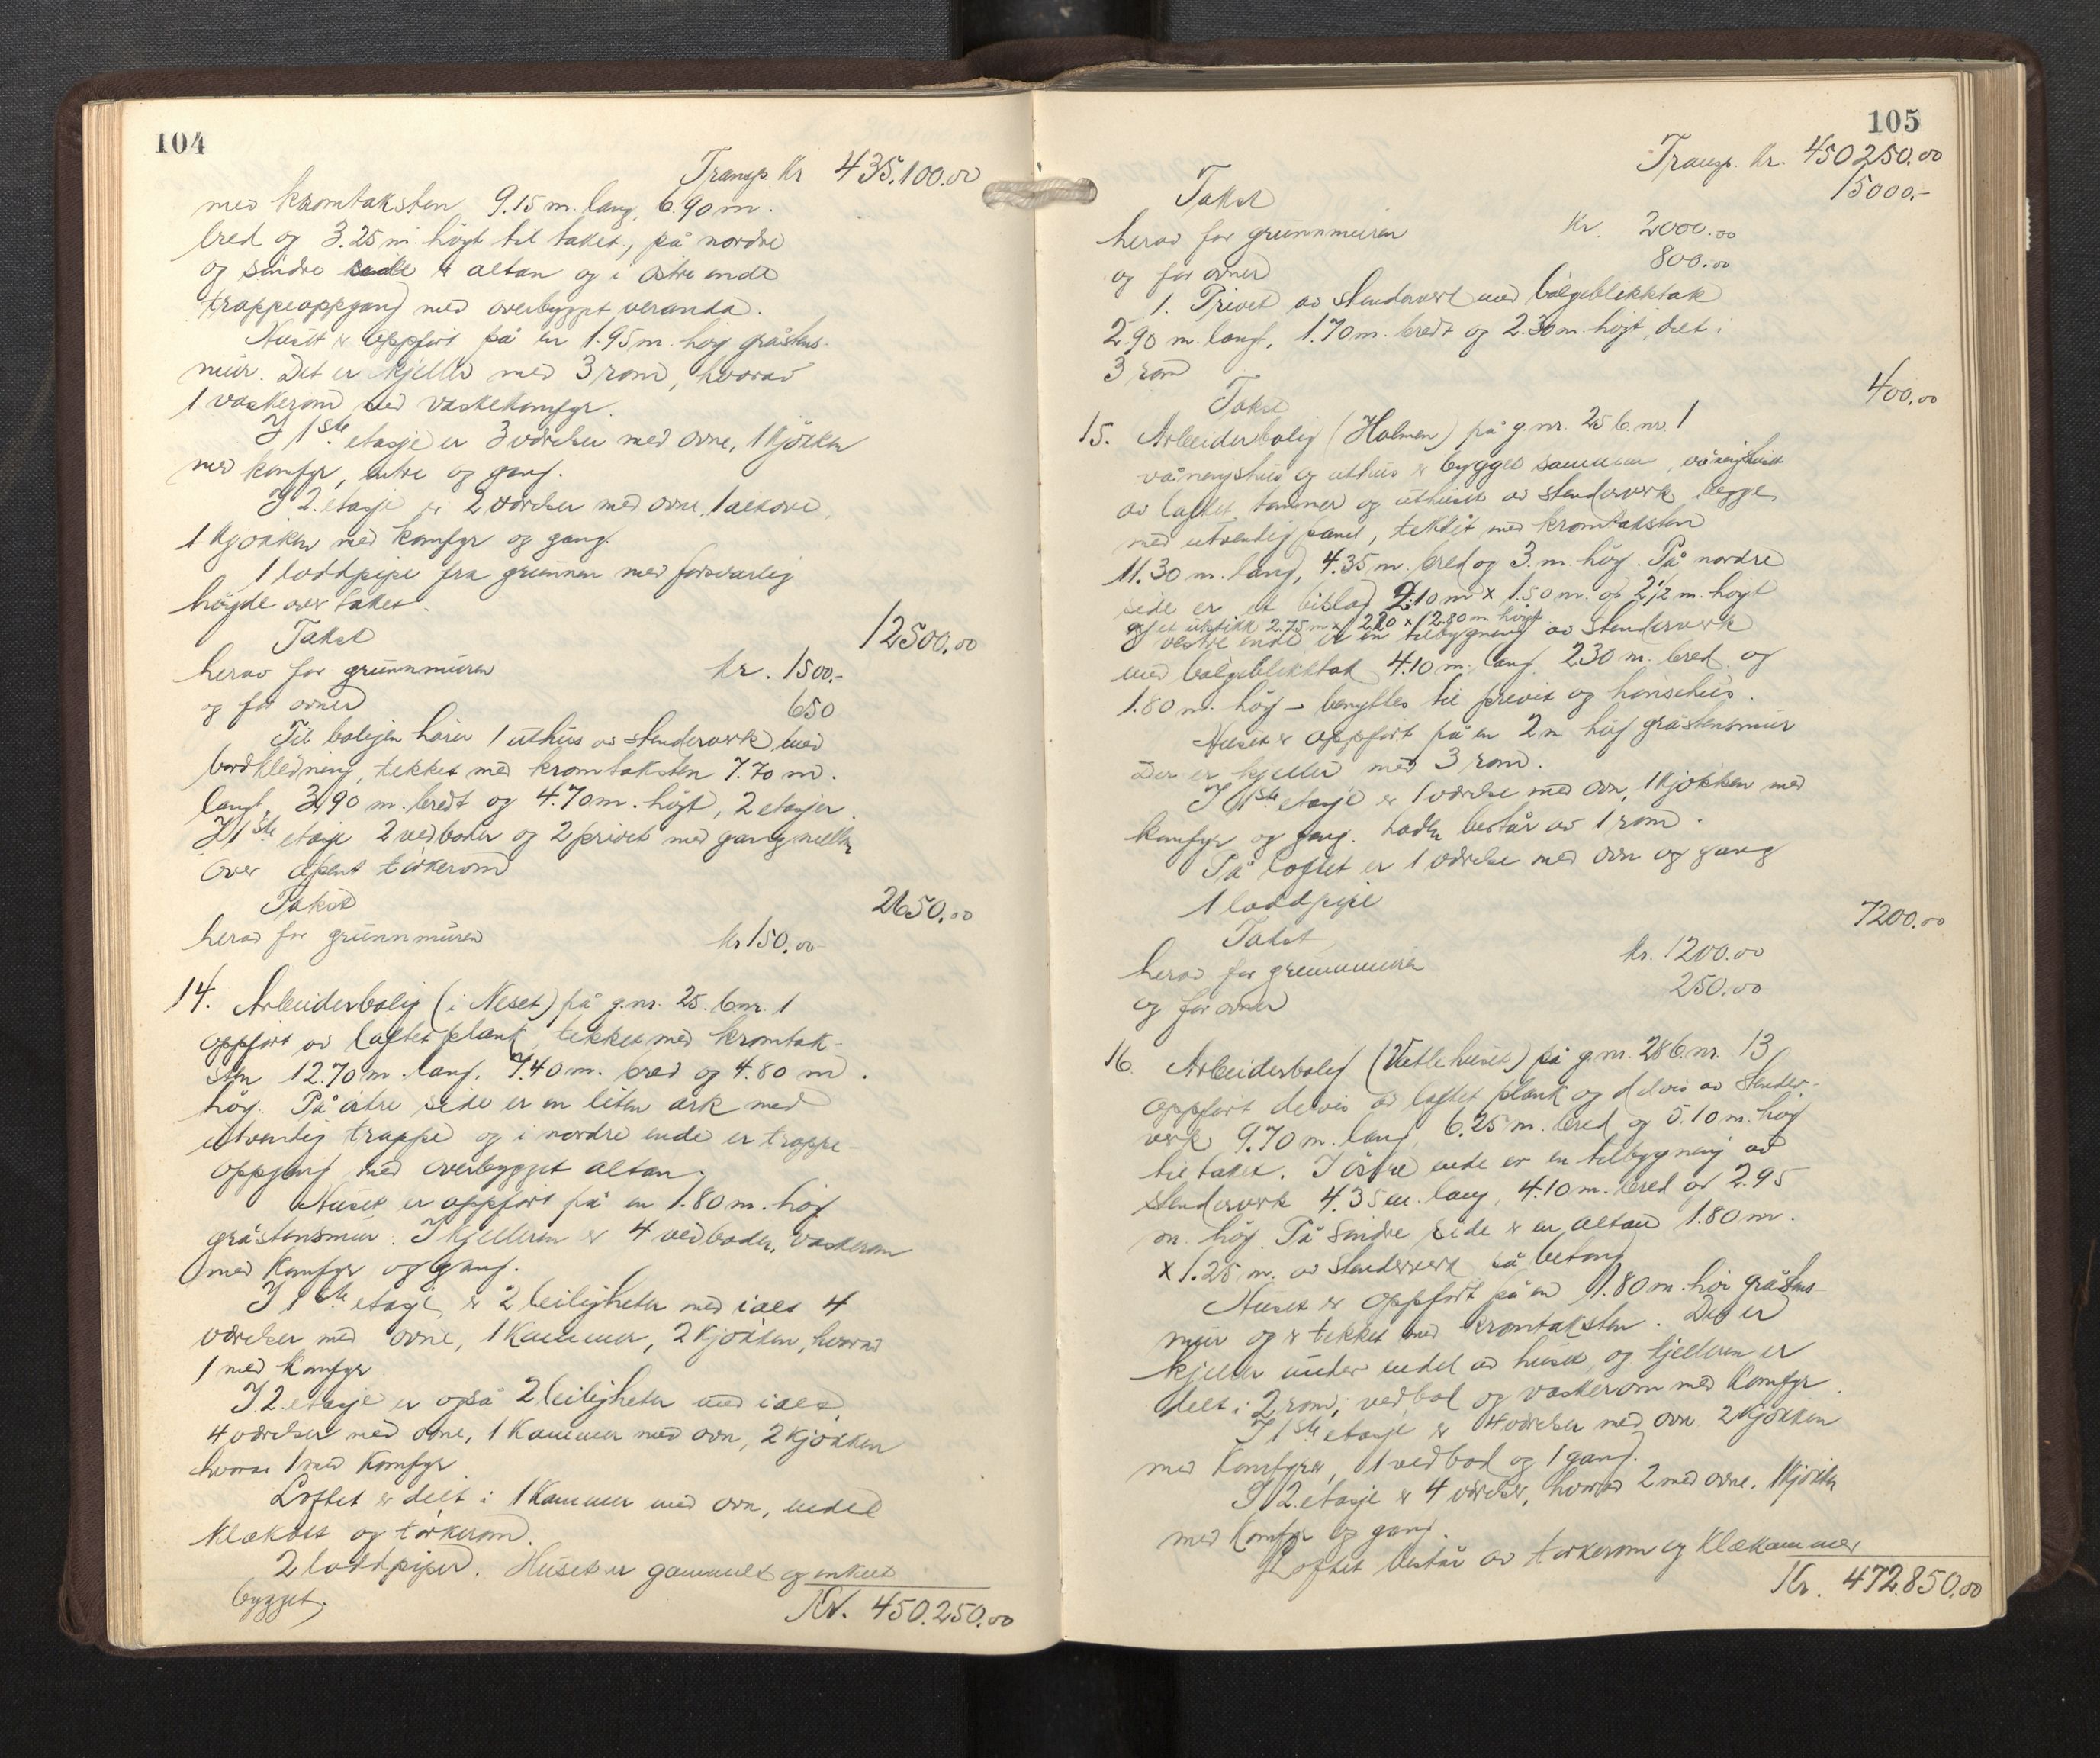 104
Transp. Kr 435.100.00
med kromtaksten 9.15 m. lang, 6.90 m.
bred og 3.25 m. högt til taket, på nordre
og söndre side er altan og i östre ende
trappeoppgang med overbygget veranda.
Huset er oppfört på en 1.95 m. höy gråstens-
mur. Det er kjeller med 3 rom, hvorav
1 vaskerom med vaskekomfyr.
I 1ste etasje er 3 værelser med ovne, 1 kjökken
med komfyr, entre og gang.
I 2. etasje er 2 værelser med ovne, 1 alkove,
1 kjökken med komfyr og gang.
1 loddpipe fra grunnen med forsvarlig
höyde over taket.
Takst 12500.00
herav for grunnmuren kr. 1500.-
og for ovner 650
Til boligen hörer 1 uthus av stenderverk med
bordkledning, tekket med kromtaksten 7.70 m.
langt, 3.90 m. bredt og 4.70 m. högt, 2 etasjer.
I 1ste etasje 2 vedboder og 2 privet med gang mellem
Over åpent törkerom
Takst 2650.00
herav for grunnmuren kr 150.00
14. Arbeiderbolig (i Neset) på g.nr. 25. b.nr. 1
oppfört av laftet plank, tekket med kromtak-
sten 12.70 m. lang, 7.40 m. bred og 4.80 m.
höy. På östre side er en liten ark med
utvendig trappe og i nordre ende er trappe-
oppgang med overbygget altan.
Huset er oppfört på en 1.80 m. höy
gråstensmur. I kjelleren er 4 vedboder, vaskerom
med komfyr og gang.
I 1ste etasje er 2 leiligheter med ialt 4
værelser med ovne, 1 kammer, 2 kjökken, hvorav
1 med komfyr
I 2. etasje er også 2 leiligheter med ialt
4 værelser med ovne, 1 kammer med ovn, 2 kjökken
hvorav 1 med komfyr
Loftet er delt i 1 kammer med ovn, endel
klækott og törkerom.
2 loddpiper. Huset er gammelt og enkelt
bygget.
Kr. 450.250.00
105
Transp. Kr. 450250.00
Takst 15000.-
herav for grunnmuren Kr. 2000.00
og for ovner 800.00
1. Privet av stenderverk med bölgeblikktak
2.90 m. langt, 1.70 m. bredt og 2.30 m. högt, delt i
3 rom
Takst 400.00
15. Arbeiderbolig (Holmen) på g.nr. 25 b.nr. 1
våningshus og uthus er bygget sammen, våningshuset
av laftet tömmer og uthuset av stenderverk begge
med utvendig panel, tekket med kromtaksten
11.30 m. lang, 4.35 m. bred og 3. m. höy. På nordre
side er et bislag 2.10 m x 1.50 m. og 2 1/2 m. högt
og et utstikk 2.75 m x 2.20 x 2.80 m. högt.
I vestre ende er en tilbygning av stenderverk
med bölgeblikktak 4.10 m. lang 2.30 m. bred og
1.80 m. höy - benyttes til privet og hönsehus.
Huset er oppfört på en 2 m höy gråstensmur
Der er kjeller med 3 rom.
I 1ste etasje er 1 værelse med ovn, 1 kjökken med
komfyr og gang. består av 1 rom.
På loftet er 1 værelse med ovn og gang
1 loddpipe
Takst 7200.00
herav for grunnmuren kr. 1200.00
og for ovner 250.00
16. Arbeiderbolig (Vetlehuset) på g.nr. 28 b.nr. 13
oppfört delvis av laftet plank og delvis av stender-
verk 9.70 m. lang, 6.25 m. bred og 5.10 m. höy
til taket. I östre ende er en tilbygning av
stenderverk 4.35 m. lang, 4.10 m. bred og 2.95
m. höy. På söndre side er en altan 1.80 m.
x 1.25 m. av stenderverk på betong
Huset er oppfört på en 1.80 m. höi gråstens-
mur og er tekket med kromtaksten. Det er
kjeller under endel av huset og kjelleren er
delt i 2 rom, vedbod og vaskerom med komfyr.
I 1ste etasje er 4 værelser med ovn 2 kjökken
med komfyrer, 1 vedbod og 1 gang.
I 2. etasje er 4 værelser, hvorav 2 med ovne. 1 kjökken
med komfyr og gang.
Loftet består av törkerom og klækammer
Kr. 472.850.00